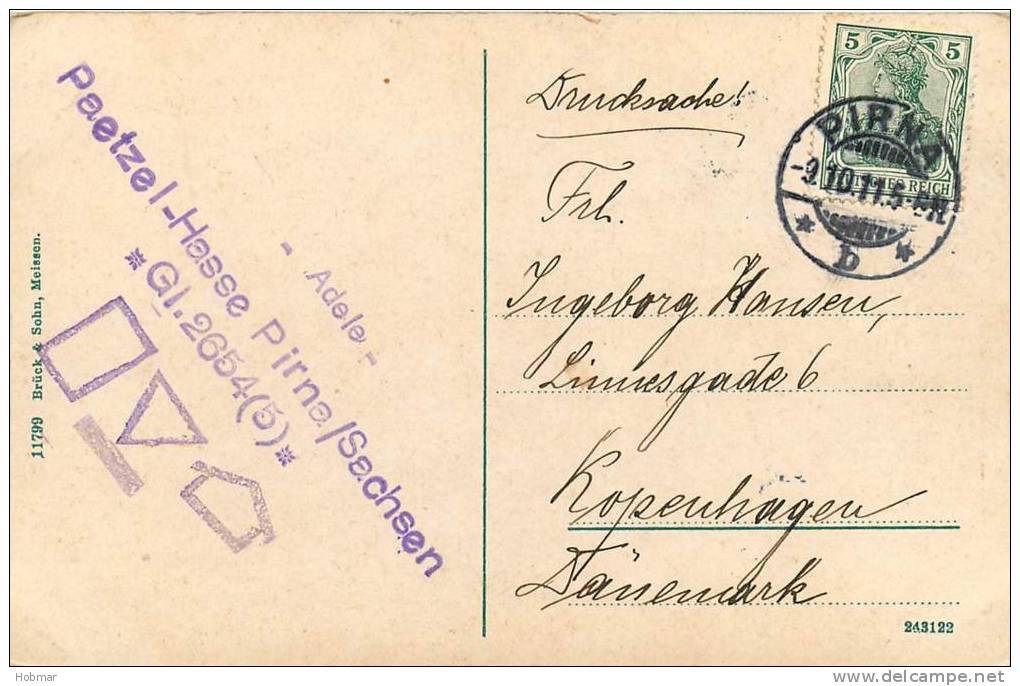 Paetzel-Hasse Pirna/Sachsen
- Adele -
*Gl.2654(5)*
11799 Brück & Sohn, Meissen.
5 5
REICH
PIRNA
-9.10.11.5-6N
* b *
Drucksache!
Frl.
Ingeborg Hansen,
Linnesgade 6
Kopenhagen
Dänemark
243122
Hobmar
delcampe.net